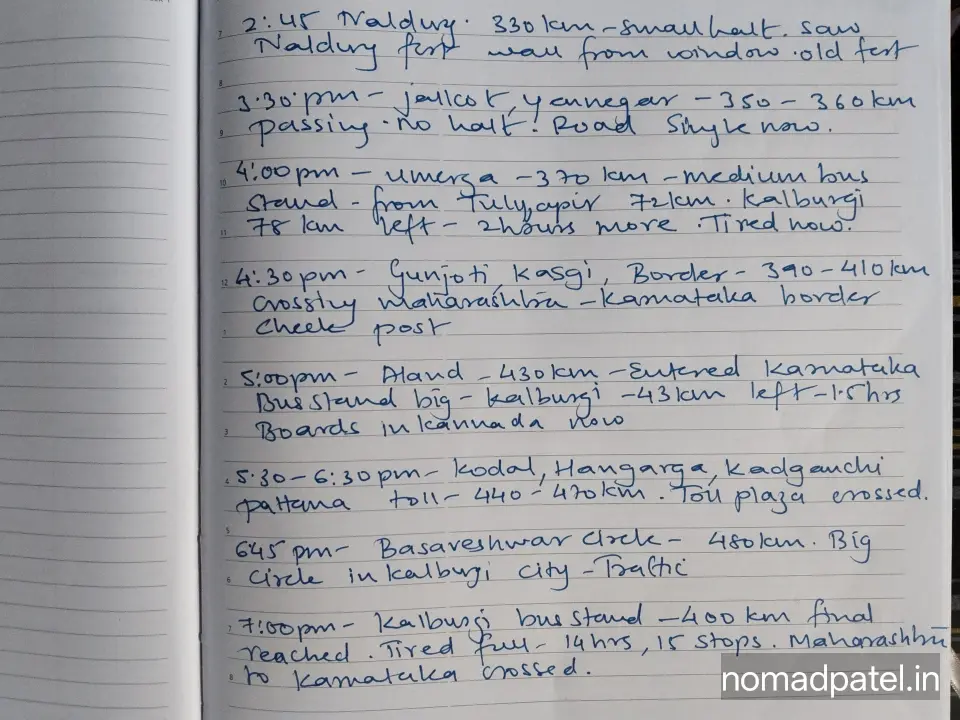 2:45 Naldurg. 330 km - small halt. saw
Naldurg fort wall from window. old fort
3.30 pm - jallcot, yennegar - 350 - 360 km
passing. no halt. Road Single now.
4:00 pm - umerga - 370 km - medium bus
stand - from Tuljapir 72 km. Kalburgi
78 km left - 2 hours more. Tired now.
4:30 pm - Gunjoti, Kasgi, Border - 390 - 410 km
crossing maharashtra - Karnataka border
check post
5:00 pm - Aland - 430 km - Entered Karnataka
Bus stand big - Kalburgi - 43 km left - 1.5 hrs
Boards in kannada now
5:30 - 6:30 pm - Kodal, Hangarga, Kadganchi
pattana toll - 440 - 470 km. Toll plaza crossed.
6:45 pm - Basaveshwar Circle - 480 km. Big
circle in kalburgi city - Traffic
7:00 pm - Kalburgi bus stand - 400 km final
reached. Tired full - 14 hrs, 15 stops. Maharashtra
to Karnataka crossed.
nomadpatel.in